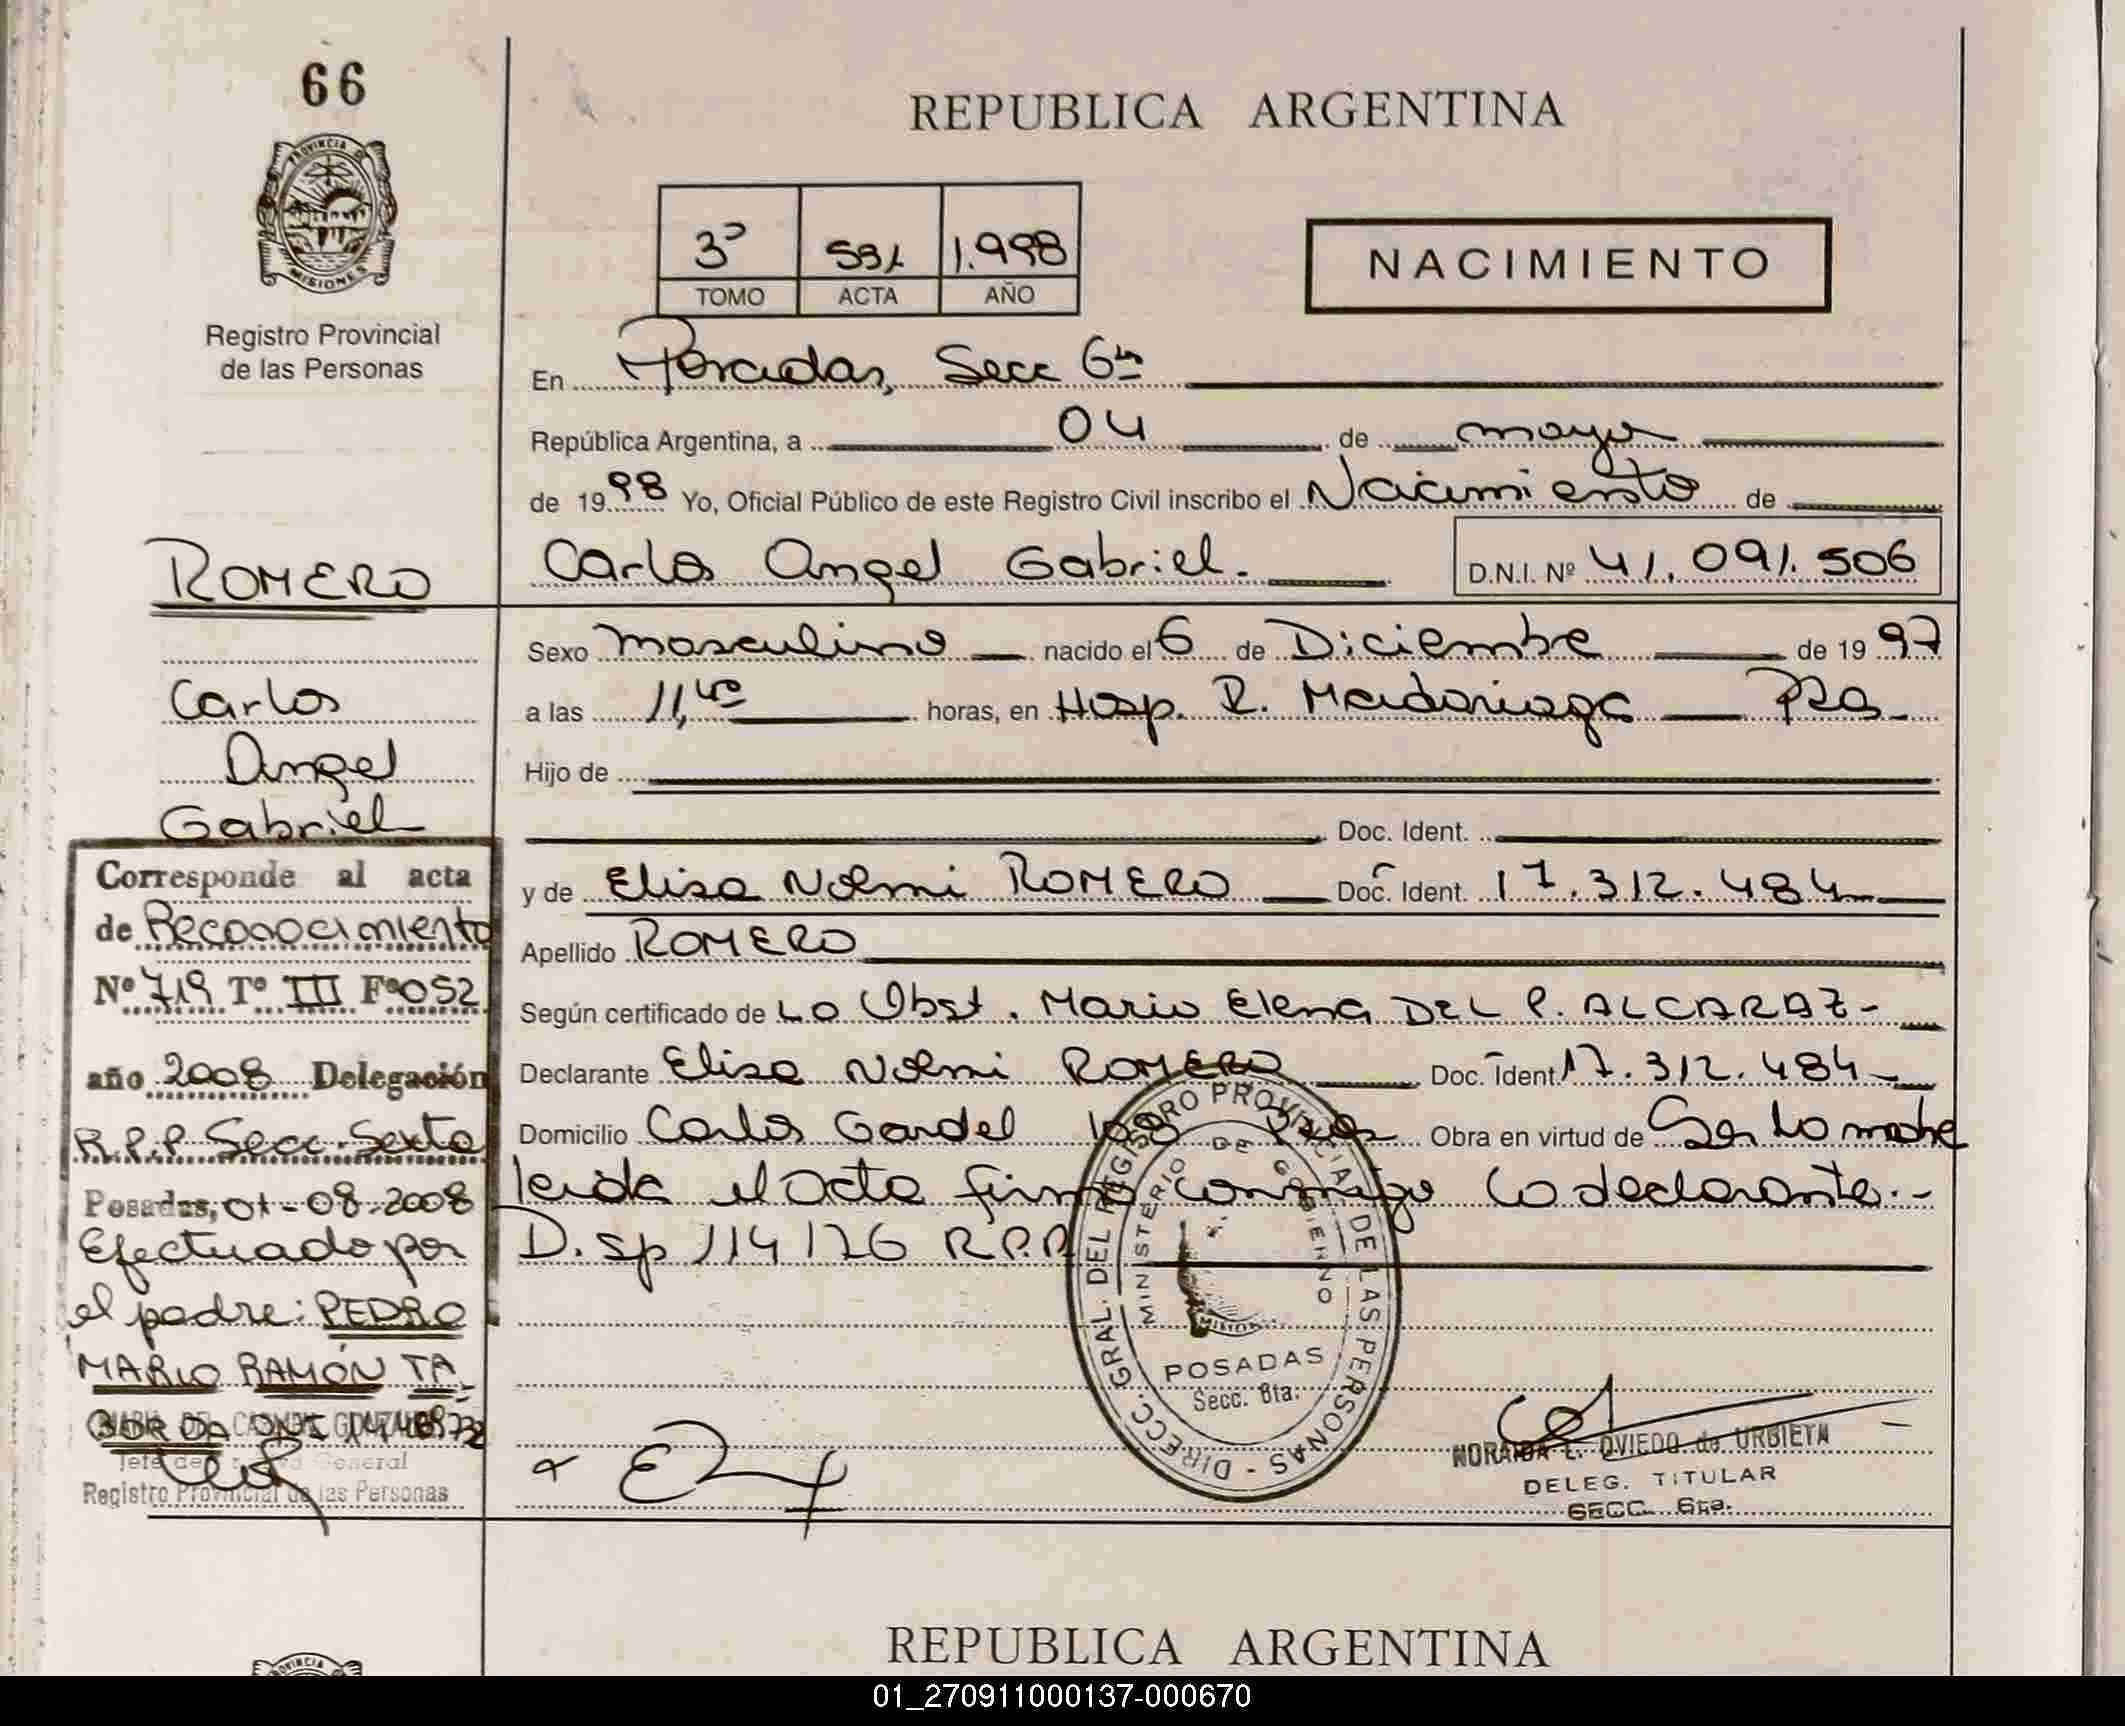 66
PROVINCIA DE
MISIONES
Registro Provincial
de las Personas
REPUBLICA ARGENTINA
3º 531 1.998
TOMO ACTA AÑO
NACIMIENTO
En Posadas, Secc 6ta
República Argentina, a 04 de mayo
de 1998 Yo, Oficial Público de este Registro Civil inscribo el Nacimiento de
Carlos Angel Gabriel. D.N.I. Nº 41.091.506
ROMERO
Carlos
Angel
Gabriel
Sexo masculino nacido el 6 de Diciembre de 1997
a las 11,40 horas, en Hosp. R. Madariaga Pdas
Hijo de
Doc. Ident.
y de Elisa Noemi ROMERO Doc. Ident. 17.312.484
Apellido ROMERO
Según certificado de La Obst. Maria Elena DEL P. ALCARAZ-
Declarante Elisa Noemi ROMERO Doc. Ident. 17.312.484
Domicilio Carlos Gardel 168 Pdas Obra en virtud de Ser la madre
leida el Acta firma conmigo la declarante.-
Disp 114/76 R.P.P
Corresponde al acta
de Reconocimiento
Nº 719 Tº III Fº 052
año 2008 Delegación
R.P.P Secc. Sexta
Posadas, 01-08-2008
Efectuado por
el padre: PEDRO
MARIO RAMÓN TA
BORDA DNI
Registro Provincial de las Personas
DIRECC. GRAL. DEL REGISTRO PROVINCIAL DE LAS PERSONAS
MINISTERIO DE GOBIERNO
POSADAS
Secc. 6ta.
NORAIDA E. OVIEDO de URBIETA
DELEG. TITULAR
SECC. 6ta.
REPUBLICA ARGENTINA
PROVINCIA
01_270911000137-000670